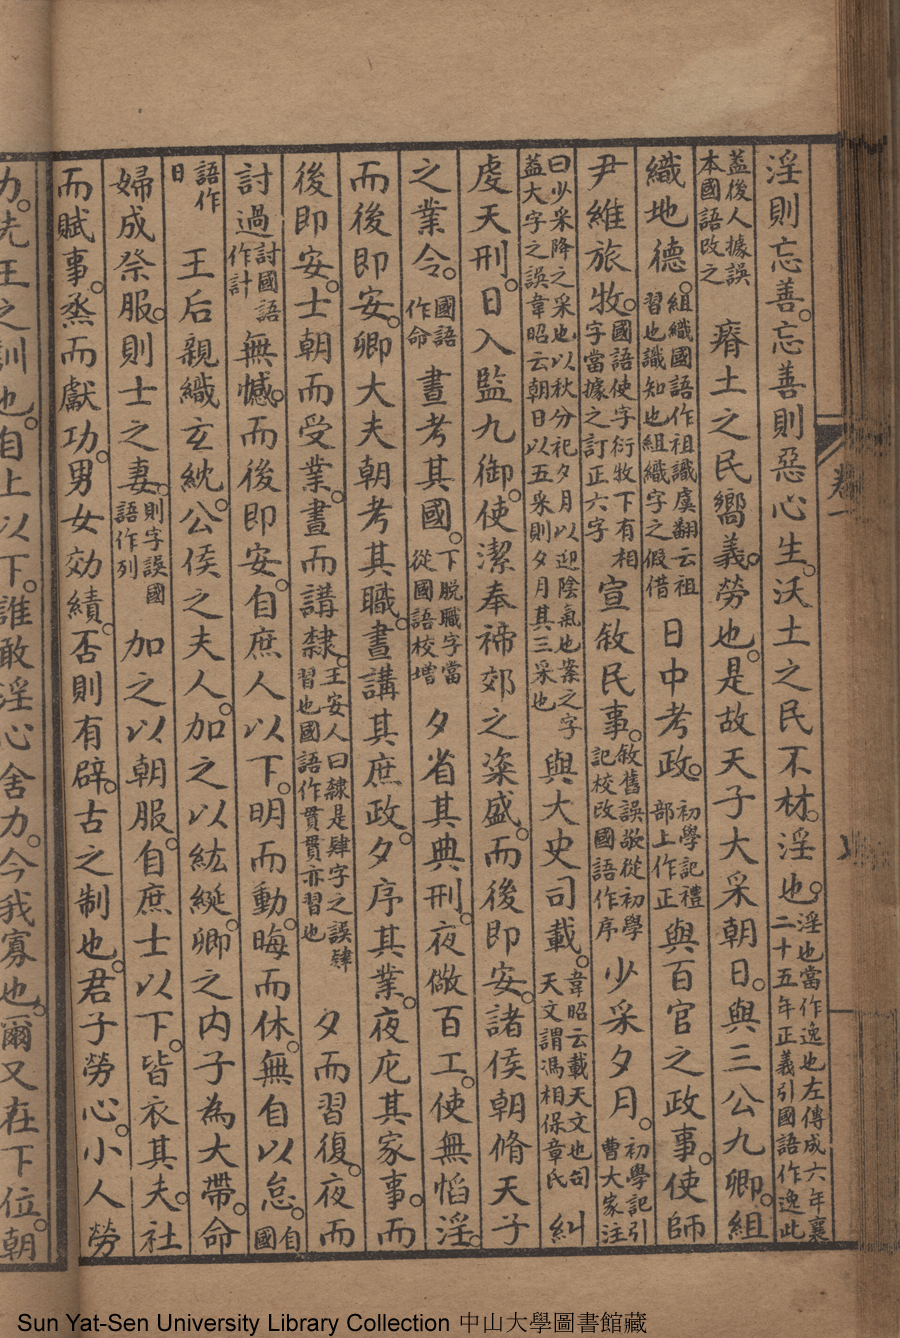 淫則忘善忘善則惡心生沃土之民不材淫也淫也當作逸也左傳成六年襄二十五年正義引國語作逸此
蓋後人據誤本國語改之瘠土之民嚮義勞也是故天子大采朝日與三公九卿組
織地德組織國語作祖識虞翻云祖習也識知也組織字之假借日中考政初學記禮部上作正與百官之政事使師
尹維旅牧國語使字衍牧下有相字當據之訂正六字宣敘民事敘舊誤敬從初學記校改國語作序少采夕月初學記引曹大家注
曰少采降之采也以秋分祀夕月以迎陰氣也案之字蓋大字之誤韋昭云朝日以五采則夕月其三采也與大史司載韋昭云載天文也司天文謂馮相保章氏糾
虔天刑日入監九御使潔奉禘郊之粢盛而後即安諸侯朝脩天子
之業令國語作命晝考其國下脫職字當從國語校增夕省其典刑夜儆百工使無慆淫
而後即安卿大夫朝考其職晝講其庶政夕序其業夜庀其家事而
後即安士朝而受業晝而講隸王安人曰隸是肄字之誤肄習也國語作貫貫亦習也夕而習復夜而
討過討國語作計無憾而後即安自庶人以下明而動晦而休無自以怠自國
語作日王后親織玄紞公侯之夫人加之以紘綖卿之内子為大帶命
婦成祭服則士之妻則字誤國語作列加之以朝服自庶士以下皆衣其夫社
而賦事烝而獻功男女効績否則有辟古之制也君子勞心小人勞
力先王之訓也自上以下誰敢淫心舍力今我寡也爾又在下位朝
卷一
Sun Yat-Sen University Library Collection 中山大學圖書館藏